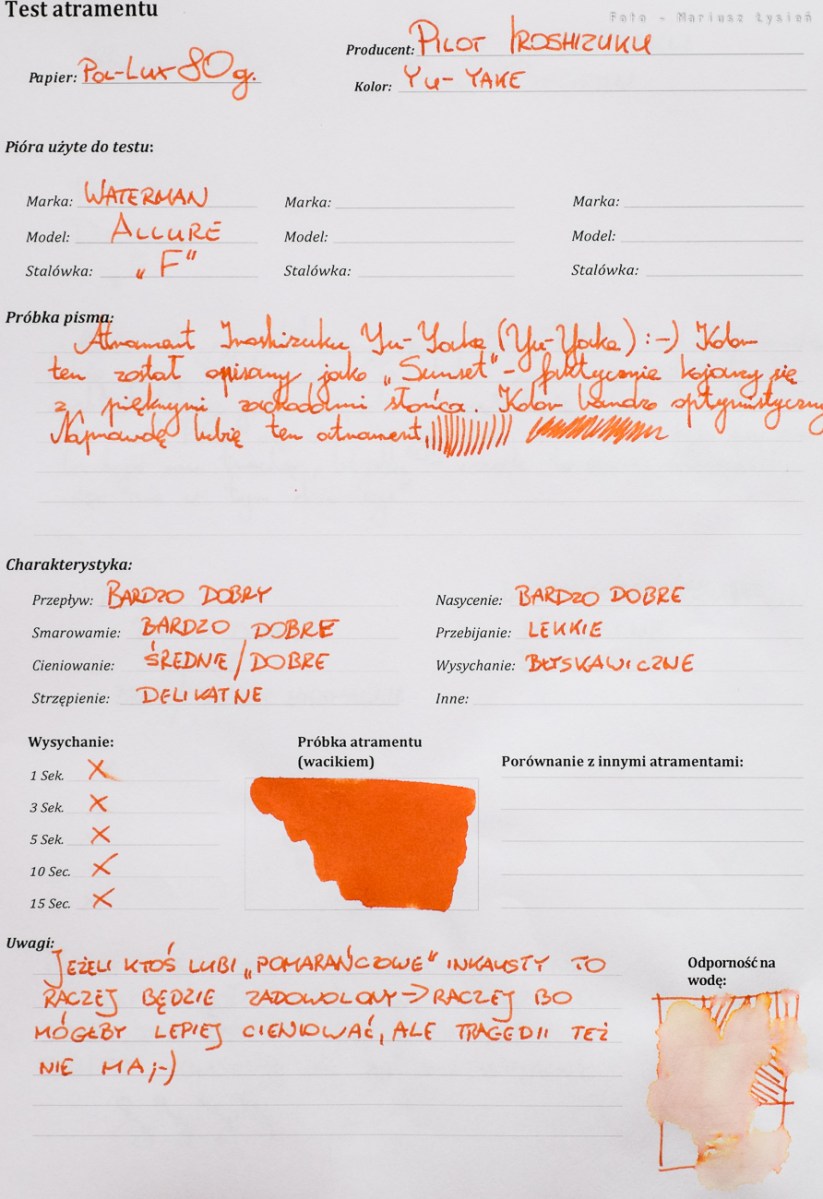 Test atramentu
Foto - Mariusz Łysień
Papier: Pol-Lux 80g.
Producent: PILOT IROSHIZUKU
Kolor: YU-YAKE
Pióra użyte do testu:
Marka: WATERMAN Marka: Marka:
Model: ALLURE Model: Model:
Stalówka: „F" Stalówka: Stalówka:
Próbka pisma:
Atrament Iroshizuku Yu-Yake (Yu-Yake) :-) Kolor
ten został opisany jako „Sunset" - faktycznie kojarzy się
z pięknymi zachodami słońca. Kolor bardzo optymistyczny
Naprawdę lubię ten atrament.
Charakterystyka:
Przepływ: BARDZO DOBRY Nasycenie: BARDZO DOBRE
Smarowamie: BARDZO DOBRE Przebijanie: LEKKIE
Cieniowanie: ŚREDNIE/DOBRE Wysychanie: BŁYSKAWICZNE
Strzępienie: DELIKATNE Inne:
Wysychanie:
1 Sek. X
3 Sek. X
5 Sek. X
10 Sec. X
15 Sec. X
Próbka atramentu
(wacikiem)
Porównanie z innymi atramentami:
Uwagi:
JEŻELI KTOŚ LUBI „POMARAŃCZOWE" INKAUSTY TO
RACZEJ BĘDZIE ZADOWOLONY → RACZEJ BO
MÓGŁBY LEPIEJ CIENIOWAĆ, ALE TRAGEDII TEŻ
NIE MA ;-)
Odporność na
wodę: